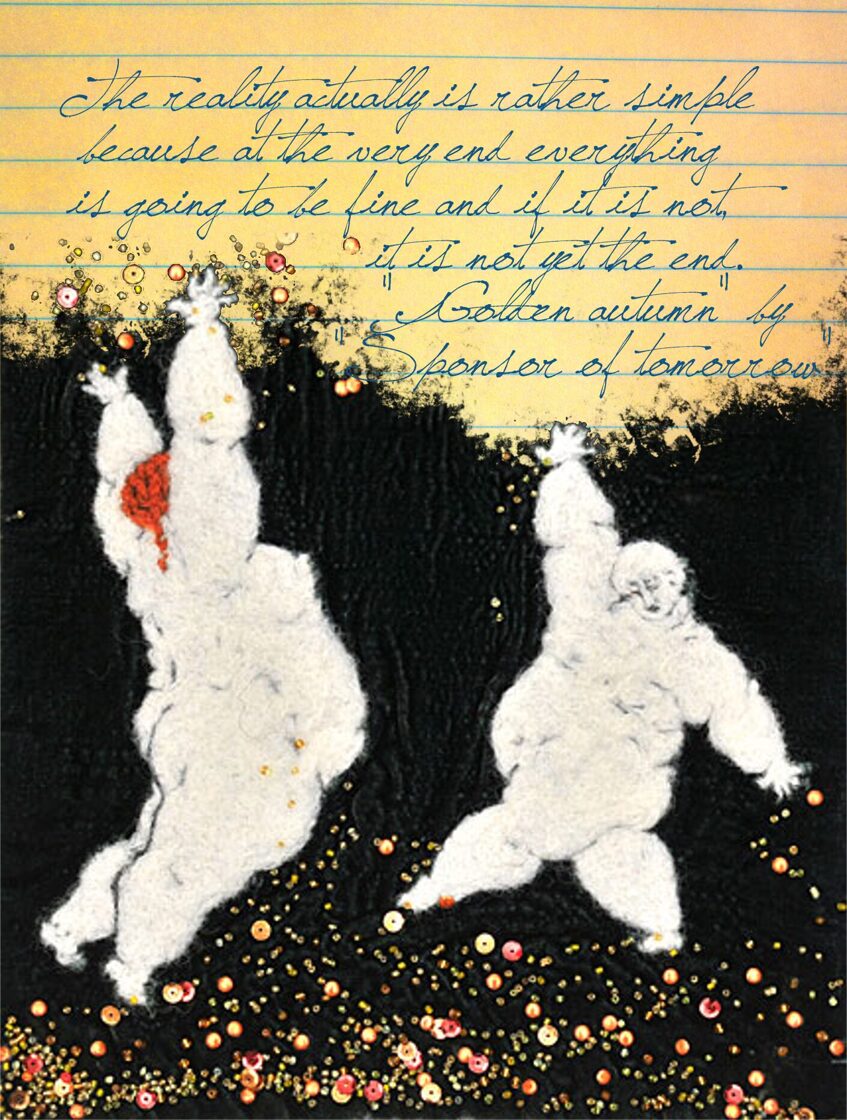 The reality actually is rather simple
because at the very end everything
is going to be fine and if it is not,
it is not yet the end.
"Golden autumn" by
"Sponsor of tomorrow"